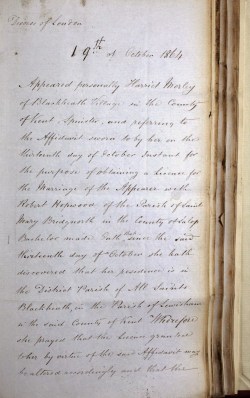 Diocese of London
19th of October 1864
Appeared personally Harriet Morley
of Blackheath Village in the County
of Kent, Spinster, and referring to
the Affidavit sworn to by her on the
thirteenth day of October Instant for
the purpose of obtaining a licence for
the Marriage of the Appearer with
Robert Hopwood of the Parish of Saint
Mary Bridgnorth in the County of Salop
Bachelor made Oath that since the said
thirteenth day of October she hath
discovered that her residence is in
the District Parish of All Saints
Blackheath, in the Parish of Lewisham
in the said County of Kent Wherefore
she prayed that the Licence granted
to her by virtue of the said Affidavit may
be altered accordingly and that the